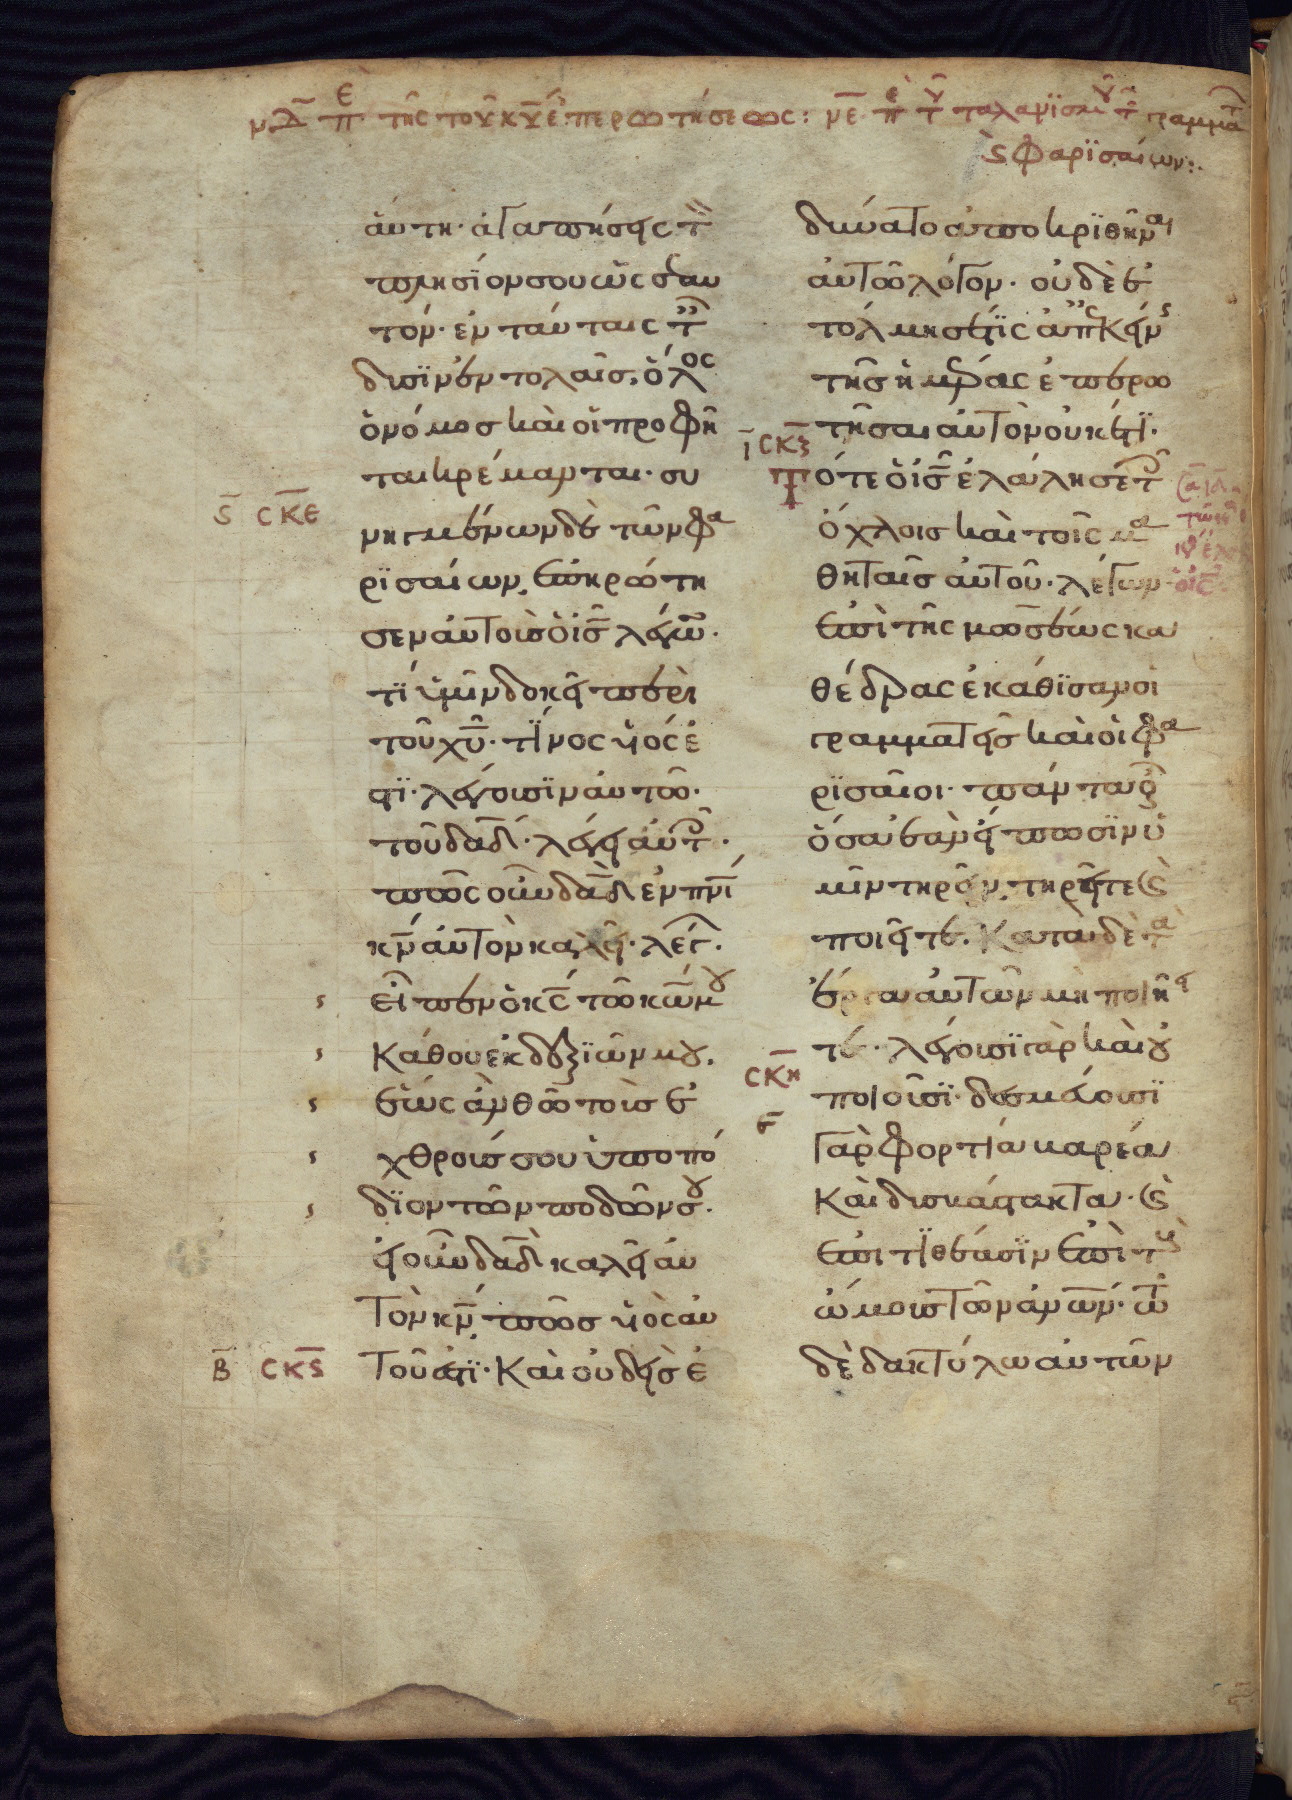 μ̅δ̅ π̅ε τῆς τοῦ κ̅υ̅ ἐπερωτήσεως: μ̅ε̅ πε τ̅ ταλανϊσμοῦ τ̅ γραμματ
ϛ φαρϊσαίων:.
ἀύτη· ἀγαπήσεις τ̅
πλησϊονσου ὡς σεαυ
τόν· ἐν ταύταις τ̅
δυσϊν ἐντολαῖς, ὅλος
ὁνόμος καὶ οἱ προφῆ
ται κρέμανται· συ
ϛ̅ σ̅κ̅ε̅
νηγμένων δὲ τῶν φα
ρϊσαίων, ἐπηρώτη
σεν ἀυτοὺσ ὁ ι̅σ̅ λέγω̅·
τί ὑμῖν δοκεῖ περὶ
τοῦ χ̅υ̅· τϊνος υἱός ἐ
στϊ· λέγουσϊν ἀυτῶ·
τοῦ δ̅α̅δ̅· λέγει ἀυτ̅·
πῶς οὖν δ̅α̅δ̅ ἐν π̅ν̅ϊ̅
κ̅ν̅ ἀυτὸν καλεῖ· λέγ·
εἶπεν ὁ κ̅ς̅ τῶ κ̅ω̅ μου
Κάθου ἐκ δεξϊῶν μου,
ἑὼς ἂν θῶ τοὺσ ἐ
χθρούσ σου ὑποπό
δϊον τῶν ποδῶν σου·
εἰ οὖν δ̅α̅δ̅ καλεῖ ἀυ
Τὸν κ̅ν̅, πῶσ υἱὸς ἀυ
β̅ σ̅κ̅ϛ̅
Τοῦ ἐστϊ· Καὶ οὐδεὶσ ἐ
δύνατο ἀποκρϊθῆναι
ἀυτῶ λόγον· οὐδὲ ἐ
τόλμησέ τϊς ἀπ ἐκείνης
τῆσ ἡμέρας ἐπερω
τῆσαι ἀυτὸν οὐκέτϊ·
ι̅ σ̅κ̅ζ̅
Τότε ὁ ι̅σ̅ ἐλάλησε τ̅
ὄχλοισ καὶ τοῖς μα
θηταῖσ ἀυτοῦ· λέγων·
ἐπὶ τῆς μωσέως κα
θέδρας ἐκάθϊσαν οἱ
γραμματεῖσ καὶ οἱ φα
ρϊσαῖοι· πάντα οὖν
ὅσα ἐὰν εἴπωσϊν ὑ
μῖν τηρεῖν, τηρεῖτε ϛ
ποιεῖτε. Κατὰ δὲ τὰ
ἔργα ἀυτῶν μὴ ποιεῖ
τε· λέγουσϊ γὰρ καὶ οὐ
σ̅κ̅η̅
ποιοῦσϊ· δεσμέυουσϊ
ε̅
Γὰρ φορτία βαρέα
Καὶ δυσβάστακτα· ϛ
ἐπι τϊθέασϊν ἐπὶ τοὺς
ὤμουσ Τῶν ἀν̅ω̅ν̅· τῶ
δὲ δακτύλω ἀυτῶν